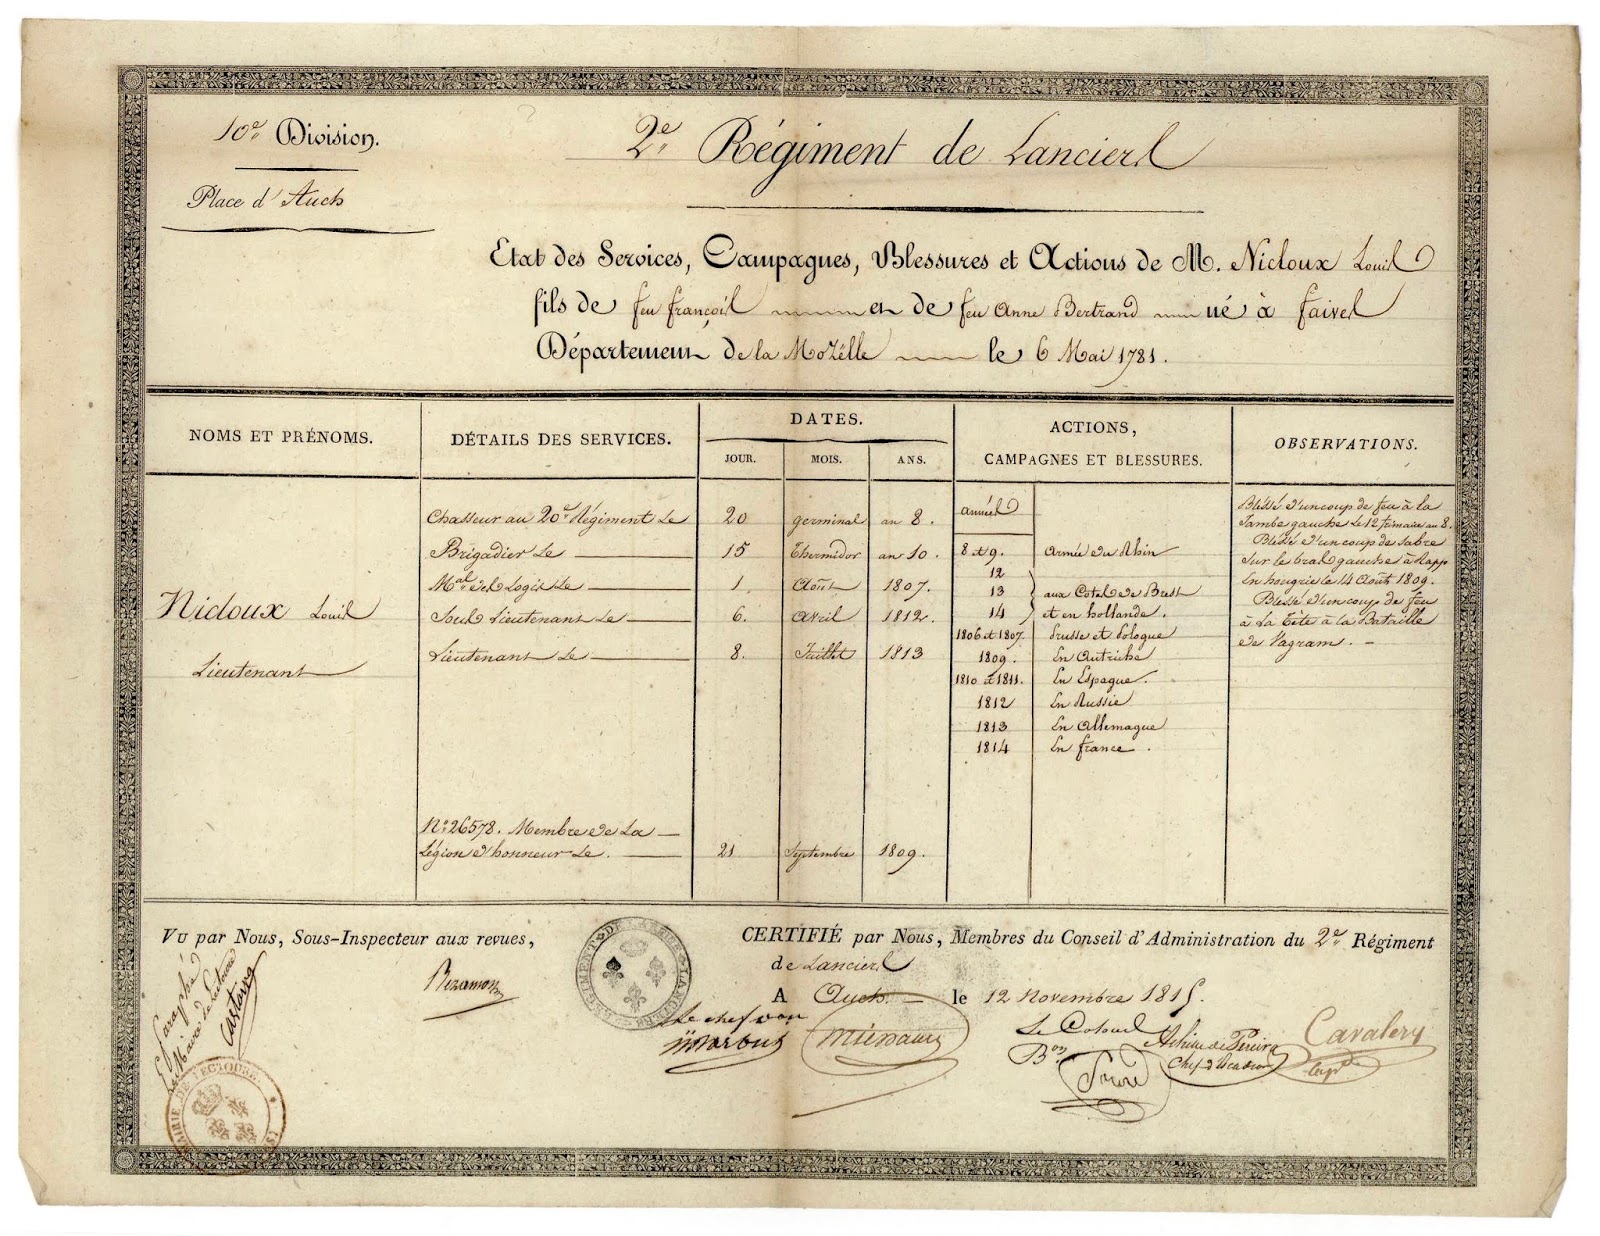 10e Division.
Place d'Auch
2e Régiment de Lanciers
Etat des Services, Campagnes, Blessures et Actions de M. Nicloux Louis
fils de feu françois et de feu Anne Bertrand né à faives
Département de la Mozëlle le 6 Mai 1781.
NOMS ET PRÉNOMS.
DÉTAILS DES SERVICES.
DATES.
JOUR.
MOIS.
ANS.
ACTIONS,
CAMPAGNES ET BLESSURES.
OBSERVATIONS.
Nicloux Louis
Lieutenant
Chasseur au 20e Régiment Le 20 germinal an 8.
Brigadier Le 15 Thermidor an 10.
Mal des Logis Le 1. Août 1807.
Sous Lieutenant Le 6. Avril 1812.
Lieutenant Le 8. Juillet 1813
No 26578. Membre de La
Légion d'honneur Le. 21 Septembre 1809.
années
8 et 9. Armée du Rhin
12
13 aux Cotes de Brest
14 et en hollande.
1806 et 1807. Prusse et Pologue
1809. En Autriche
1810 et 1811. En Espagne.
1812 En Russie
1813 En Allemague
1814 En france.
Bléssé d'un coup de feu à la
Jambe gauche Le 12 frimaire an 8.
Blessé d'un coup de sabre
sur le bras gauche à Raap
En hongrie le 14 Août 1809.
Blessé d'un coup de feu
à La Tête à la Bataille
de Vagram.
Vu par Nous, Sous-Inspecteur aux revues,
CERTIFIÉ par Nous, Membres du Conseil d'Administration du 2e Régiment
de Lanciers
A Auch. le 12 Novembre 1815.
Le chef d'on
Le Colonel
Bon
Achille de Pereira
Chef d'Escadron
Cavalery
Castaing
MAIRIE DE LECTOURE